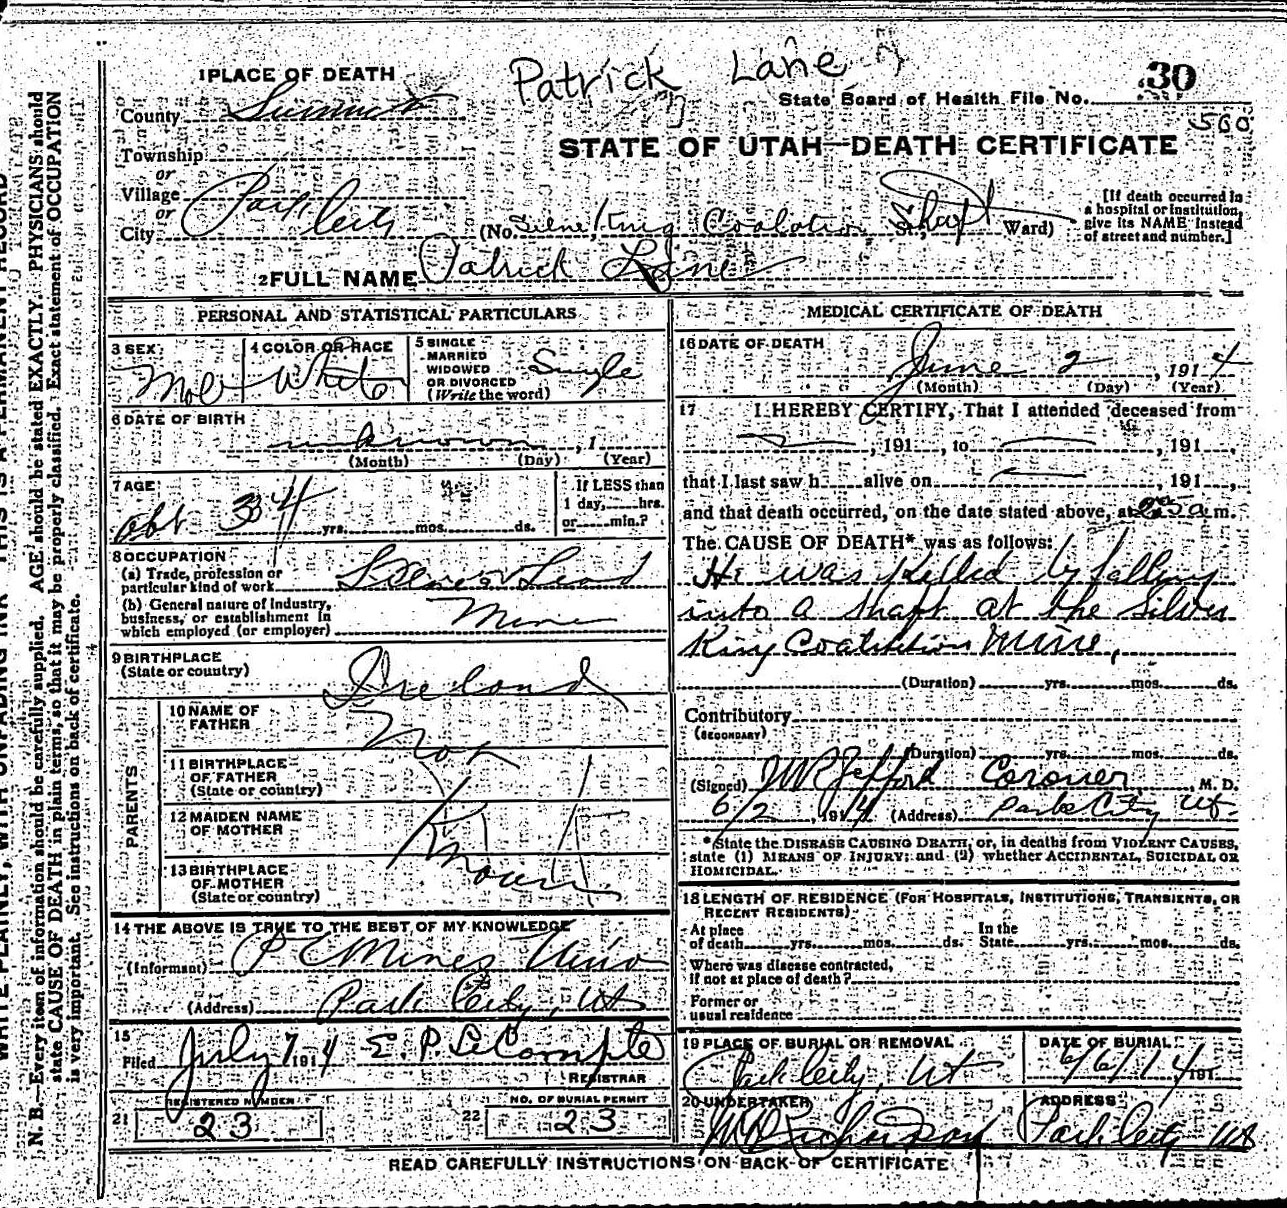 Patrick Lane
1 PLACE OF DEATH
30
State Board of Health File No.
560
County Summit
STATE OF UTAH—DEATH CERTIFICATE
Township
or
Village
or
City Park City
(No. Silver King Coalation Shaft Ward)
[If death occurred in
a hospital or institution,
give its NAME instead
of street and number.]
2 FULL NAME Patrick Lane
PERSONAL AND STATISTICAL PARTICULARS
3 SEX
Male
4 COLOR OR RACE
White
5 SINGLE
MARRIED
WIDOWED
OR DIVORCED
(Write the word)
Single
6 DATE OF BIRTH
unknown , 1
(Month) (Day) (Year)
7 AGE
abt 34 yrs. mos. ds.
If LESS than
1 day, hrs.
or min.?
8 OCCUPATION
(a) Trade, profession or
particular kind of work
(b) General nature of industry,
business, or establishment in
which employed (or employer)
Silver & Lead
Mine
9 BIRTHPLACE
(State or country)
Ireland
PARENTS
10 NAME OF
FATHER
11 BIRTHPLACE
OF FATHER
(State or country)
12 MAIDEN NAME
OF MOTHER
13 BIRTHPLACE
OF MOTHER
(State or country)
Not
Known
14 THE ABOVE IS TRUE TO THE BEST OF MY KNOWLEDGE
(Informant) P C Miners Union
(Address) Park City, Ut
15
Filed July 7 1914 E. P. LeCompte
REGISTRAR
21 REGISTERED NUMBER
23
22 NO. OF BURIAL PERMIT
23
MEDICAL CERTIFICATE OF DEATH
16 DATE OF DEATH
June 2 , 1914
(Month) (Day) (Year)
17 I HEREBY CERTIFY, That I attended deceased from
, 191 , to , 191 ,
that I last saw h alive on , 191 ,
and that death occurred, on the date stated above, at m.
The CAUSE OF DEATH* was as follows:
He was killed by falling
into a shaft at the Silver
King Coalition Mine,
(Duration) yrs. mos. ds.
Contributory
(SECONDARY)
(Duration) yrs. mos. ds.
(Signed) Coroner , M. D.
6/2 , 1914 (Address) Park City Ut
*State the DISEASE CAUSING DEATH, or, in deaths from VIOLENT CAUSES,
state (1) MEANS OF INJURY; and (2) whether ACCIDENTAL, SUICIDAL OR
HOMICIDAL.
18 LENGTH OF RESIDENCE (FOR HOSPITALS, INSTITUTIONS, TRANSIENTS, OR
RECENT RESIDENTS)
At place
of death yrs. mos. ds.
In the
State yrs. mos. ds.
Where was disease contracted,
if not at place of death?
Former or
usual residence
19 PLACE OF BURIAL OR REMOVAL
Park City, Ut
DATE OF BURIAL
6/6/14 191
20 UNDERTAKER
Richardson
ADDRESS
Park City Ut
READ CAREFULLY INSTRUCTIONS ON BACK OF CERTIFICATE
WRITE PLAINLY, WITH UNFADING INK—THIS IS A PERMANENT RECORD
N. B.—Every item of information should be carefully supplied. AGE should be stated EXACTLY. PHYSICIANS should
state CAUSE OF DEATH in plain terms, so that it may be properly classified. Exact statement of OCCUPATION
is very important. See instructions on back of certificate.